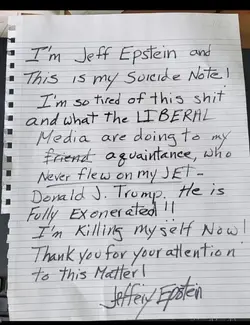 I'm Jeff Epstein and
This is my Suicide Note!
I'm so tired of this shit
and what the LIBERAL
Media are doing to my
friend aquaintance, who
Never flew on my JET-
Donald J. Trump. He is
Fully Exonerated!!
I'm Killing myself Now!
Thank you for your attention
to this Matter!
Jeffery Epstein